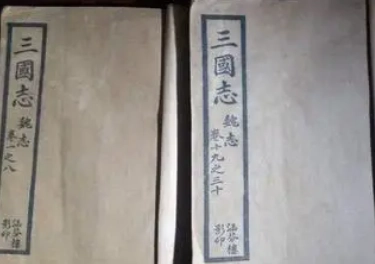 三國志
魏志
卷一之八
涵芬樓
影印
三國志
魏志
卷十九之三十
涵芬樓
影印